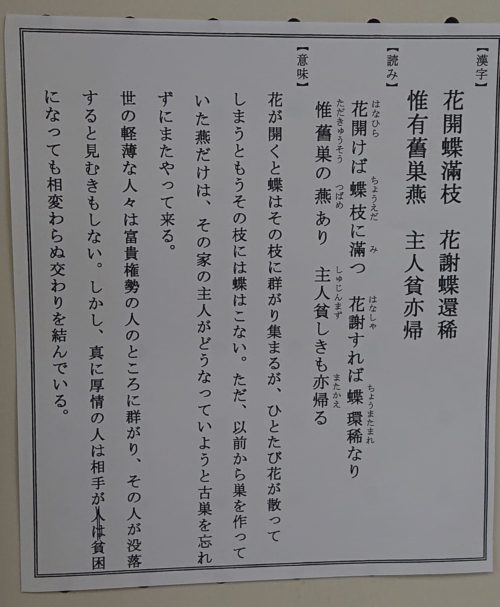 【漢字】
花開蝶滿枝　花謝蝶還稀
惟有舊巣燕　主人貧亦帰
【読み】
はなひら　ちょうえだ　み　はなしゃ　ちょうまたまれ
花開けば 蝶 枝に滿つ　花謝すれば 蝶 環稀なり
ただきゅうそう　つばめ　しゅじんまず　またかえ
惟 舊巣の 燕 あり　主人貧しきも亦帰る
【意味】
花が開くと蝶はその枝に群がり集まるが、ひとたび花が散って
しまうともうその枝には蝶はこない。ただ、以前から巣を作って
いた燕だけは、その家の主人がどうなっていようと古巣を忘れ
ずにまたやって来る。
世の軽薄な人々は富貴権勢の人のところに群がり、その人が没落
すると見むきもしない。しかし、真に厚情の人は相手が人は貧困
になっても相変わらぬ交わりを結んでいる。